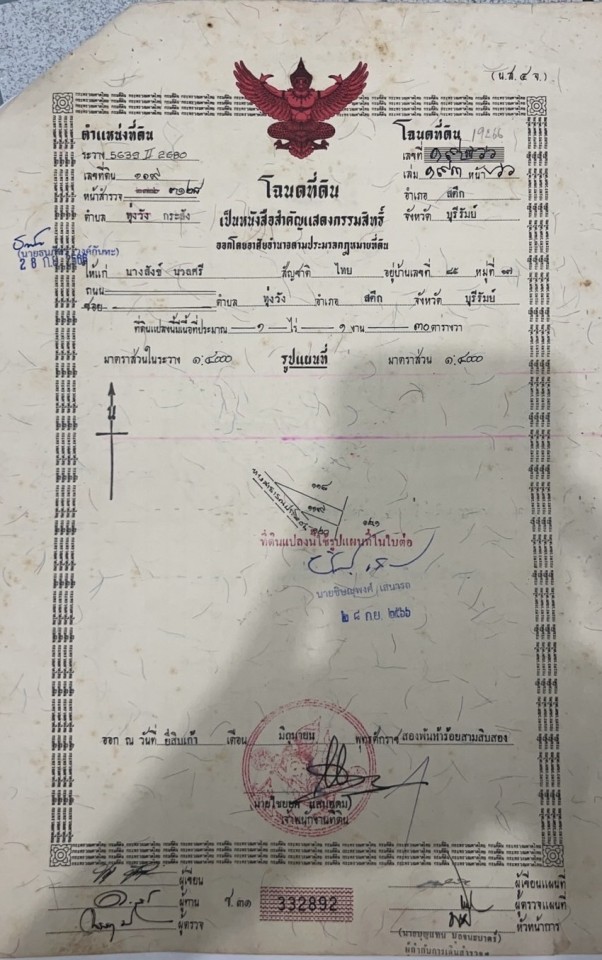 (น.ส. ๔ จ.)
ตำแหน่งที่ดิน
ระวาง 5639 II 2680
เลขที่ดิน ๑๑๙
หน้าสำรวจ ๓๑๒๘
ตำบล ทุ่งวัง กระสัง
โฉนดที่ดิน 19266
เลขที่
เล่ม ๑๙๓ หน้า ๖๖
อำเภอ สตึก
จังหวัด บุรีรัมย์
โฉนดที่ดิน
เป็นหนังสือสำคัญแสดงกรรมสิทธิ์
ออกโดยอาศัยอำนาจตามประมวลกฎหมายที่ดิน
28 ก.ย. 2566
ให้แก่ นางสังข์ นวลศรี สัญชาติ ไทย อยู่บ้านเลขที่ ๔๕ หมู่ที่ ๑๗
ถนน
ซอย ตำบล ทุ่งวัง อำเภอ สตึก จังหวัด บุรีรัมย์
ที่ดินแปลงนี้มีเนื้อที่ประมาณ ๑ ไร่ ๑ งาน ๓๐ ตารางวา
มาตราส่วนในระวาง ๑:๔๐๐๐ รูปแผนที่ มาตราส่วน ๑:๔๐๐๐
น
๑๑๘
๑๑๙
๑๒๐
๑๒๑
ที่ดินแปลงนี้ใช้รูปแผนที่ในใบต่อ
นายชิษณุพงศ์ เสนารถ
๒๘ ก.ย. ๒๕๖๖
ออก ณ วันที่ ยี่สิบเก้า เดือน มิถุนายน พุทธศักราช สองพันห้าร้อยสามสิบสอง
เจ้าพนักงานที่ดิน
ผู้เขียน
ผู้ทาน
ผู้ตรวจ
ช.๓๑ 332892
ผู้เขียนแผนที่
ผู้ตรวจแผนที่
หัวหน้าการ
ผู้กำกับการเดินสำรวจฯ